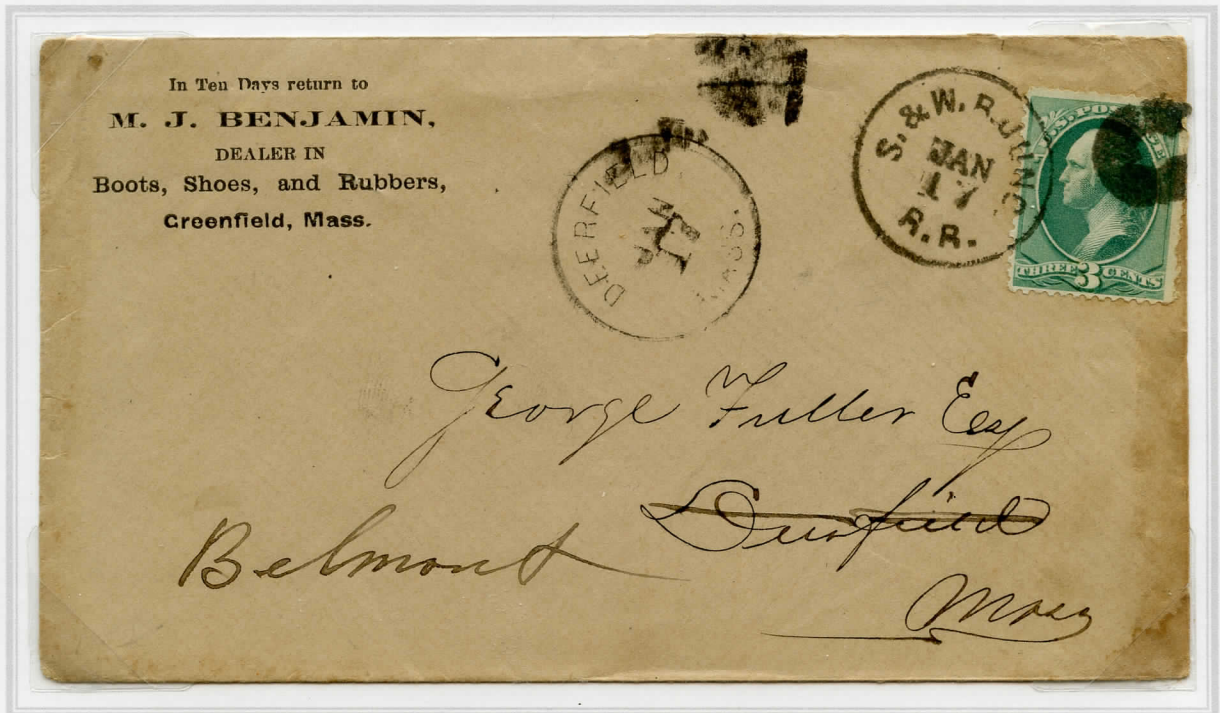 In Ten Days return to
M. J. BENJAMIN,
DEALER IN
Boots, Shoes, and Rubbers,
Greenfield, Mass.
DEERFIELD, MASS.
JAN 17
S. & W. R. JUNC.
JAN
17
R. R.
U.S. POSTAGE
THREE 3 CENTS
George Fuller Esq
Deerfield
Belmont
Mass